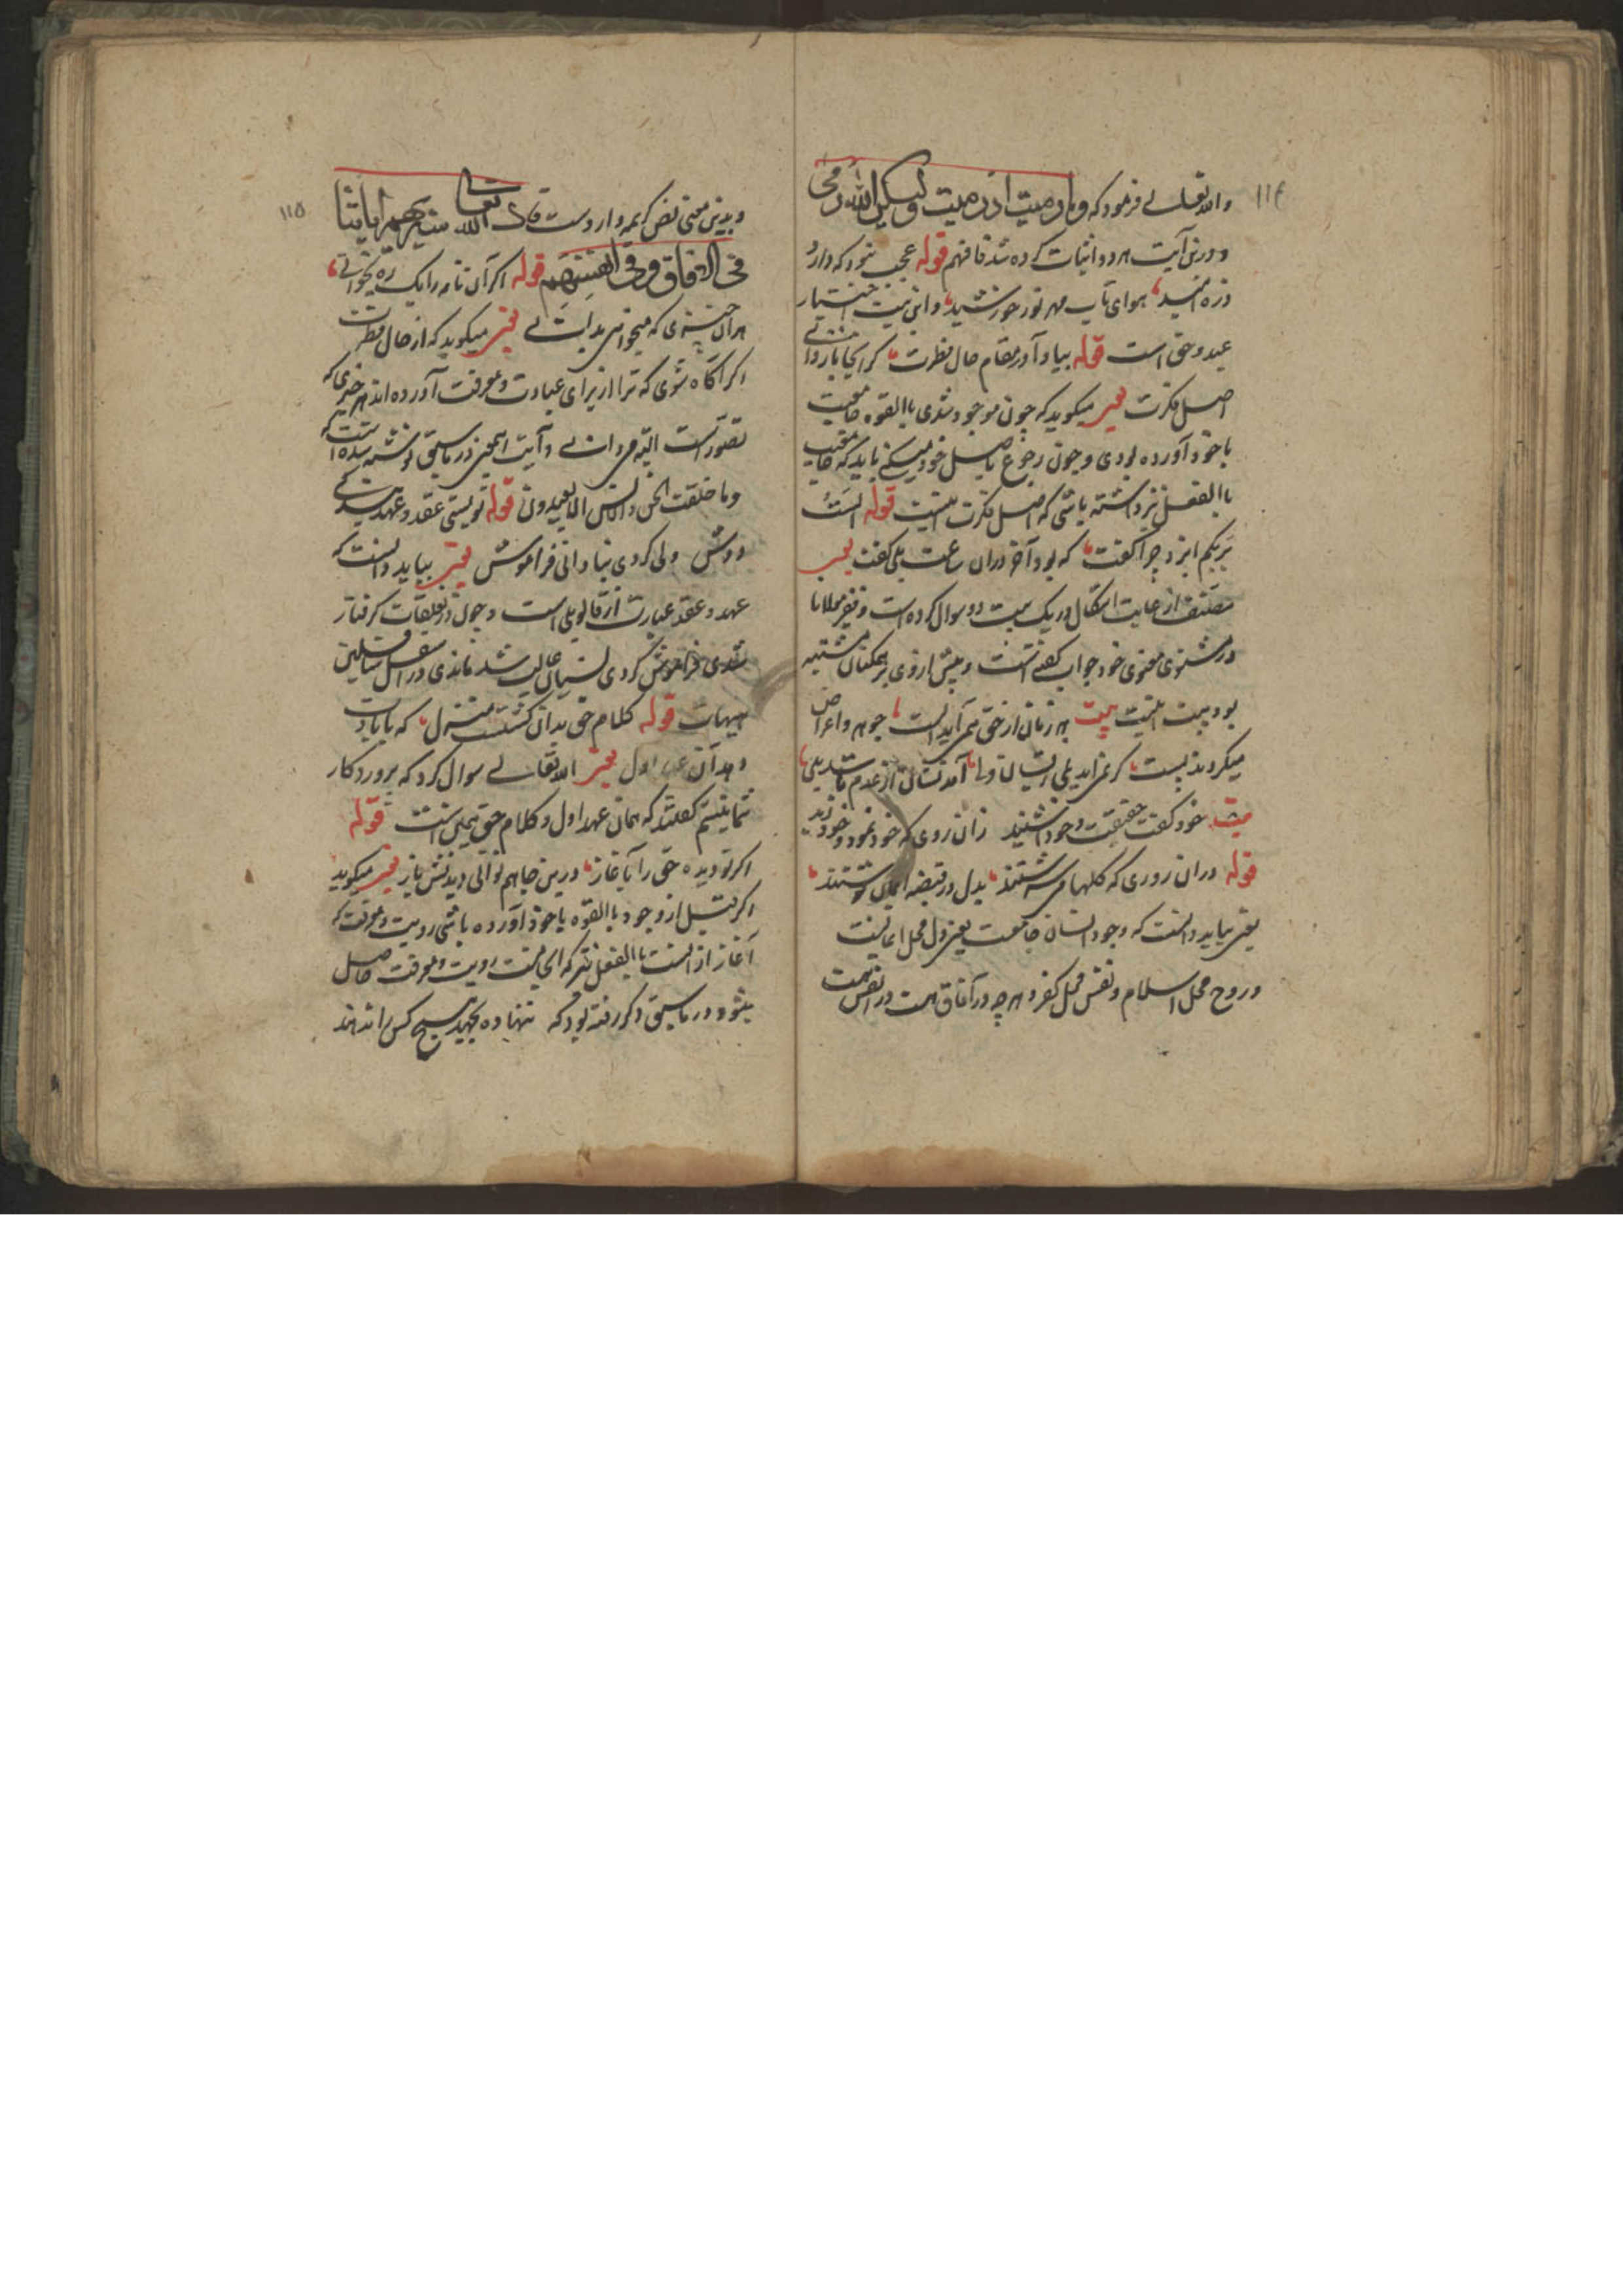 ۱۱۴
والله تعالی فرمود که وما رمیت اذ رمیت ولکن الله رمی
و درین آیت هر دو اثبات کرده شد فافهم قوله عجب نبود که دارد
ذره امید هوای تاب مهر نور خورشید و این بیت اختیار
عبد و حق است قوله بیاد آور مقام حال فطرت کز اینجا باز دانی
اصل فکرت یعنی میگوید که چون موجود شدی باالقوه جامعیت
با خود آورده بودی و چون رجوع باصل خود میکنی باید که جامعیت
باالفعل نیز داشته باشی که اصل فکرت اینست قوله الست
بربکم ایزد چرا گفت که بود آخر دران ساعت بلی گفت یعنی
مصنف از غایت اشکال در یک بیت دو سوال کرده است و فقیر مولانا
در مثنوی معنوی خود جواب گفته است و پیش ازوی بر همکنان مشتبه
بود بیت اینست بیت هر زمان از حق همی آید الست جوهر و اعراض
میگردند هست گر نمی‌آید بلی زیشان ولی آمدنشان از عدم باشد بلی
بیت خود گفت حقیقت و خود شنید زان روی که خود نمود و خود دید
قوله دران روزی که گلها می سرشتند بدل در قصه ایمان نوشتند
یعنی بباید دانست که وجود انسان جامعست یعنی دل محل ایمانست
و روح محل اسلام و نفس محل کفر و هر چه در آفاق است در انفس است
۱۱۵
و بدین معنی نص کریمه وارد است قال الله تعالی سنریهم ایاتنا
فی الافاق وفی انفسهم قوله اگر آن نامه را یک ره بخوانی
هر آن چیزی که میخواهی بدانی یعنی میگوید که از حال فطرت
اگر آگاه شوی که ترا از برای عبادت و معرفت آورده اند هر چیزی که
تصور است البته می دانی و آیت اینمعنی در ماسبق نوشته شده است که
وما خلقت الجن والانس الا لیعبدون قوله تو بستی عقد و عهد بندگی
دوش ولی کردی بنادانی فراموش یعنی بباید دانست که
عهد و عقد عبارت از قالوا بلی است و چون در تعلقات گرفتار
شدی فراموش کردی نسیان غالب شد ماندی در اسفل سافلین
هیهات قوله کلام حق بدان گشتست منزل که با یادت
دهد آن عهد اول یعنی الله تعالی سوال کرد که پروردگار
شما نیستم گفتند که همان عهد اول و کلام حق بلی است قوله
اگر تو دیده حق را بآغاز درین جا هم توانی دیدنش باز یعنی میگوید
اگر قبل از وجود باالقوه با خود آورده باشی رویت و معرفت که
آغاز از آنست باالفعل نیز که اینجاست رویت و معرفت حاصل
میشود و در ماسبق ذکر رفته بود که ننهاده بجهد هیچ کس را ندهند